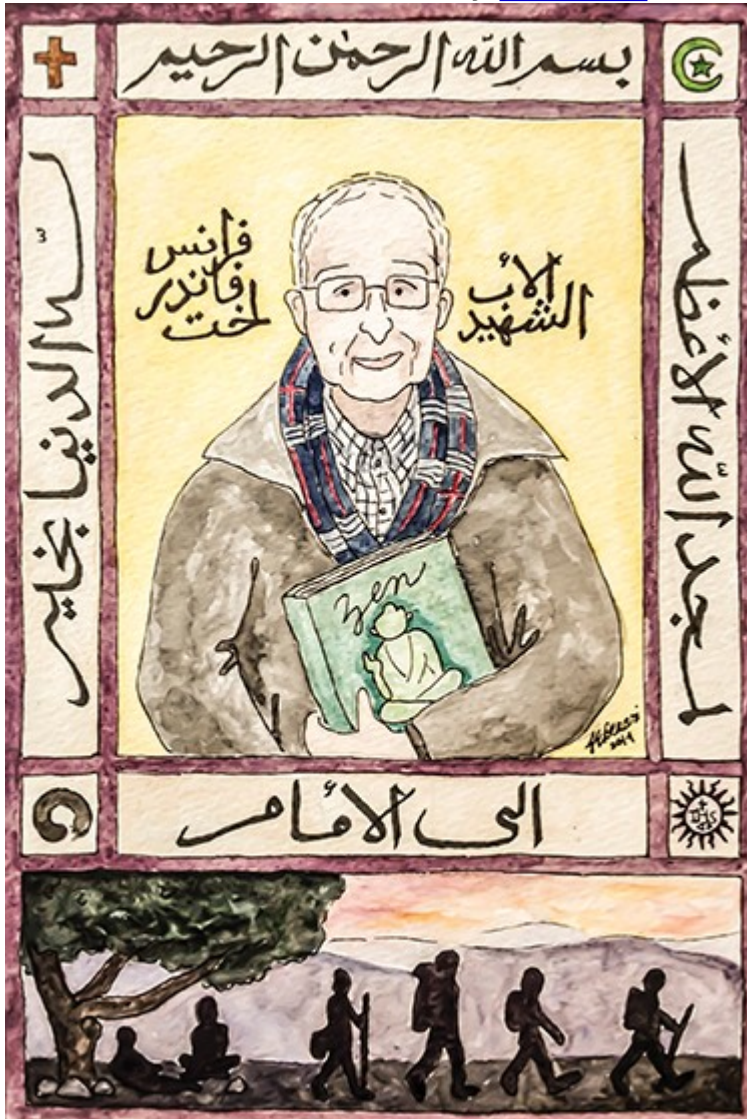 بسم الله الرحمن الرحيم
لمجد الله الأعظم
لسّا الدنيا بخير
الأب
الشهيد
فرانس
فاندر
لخت
Zen
IHS
الى الأمام